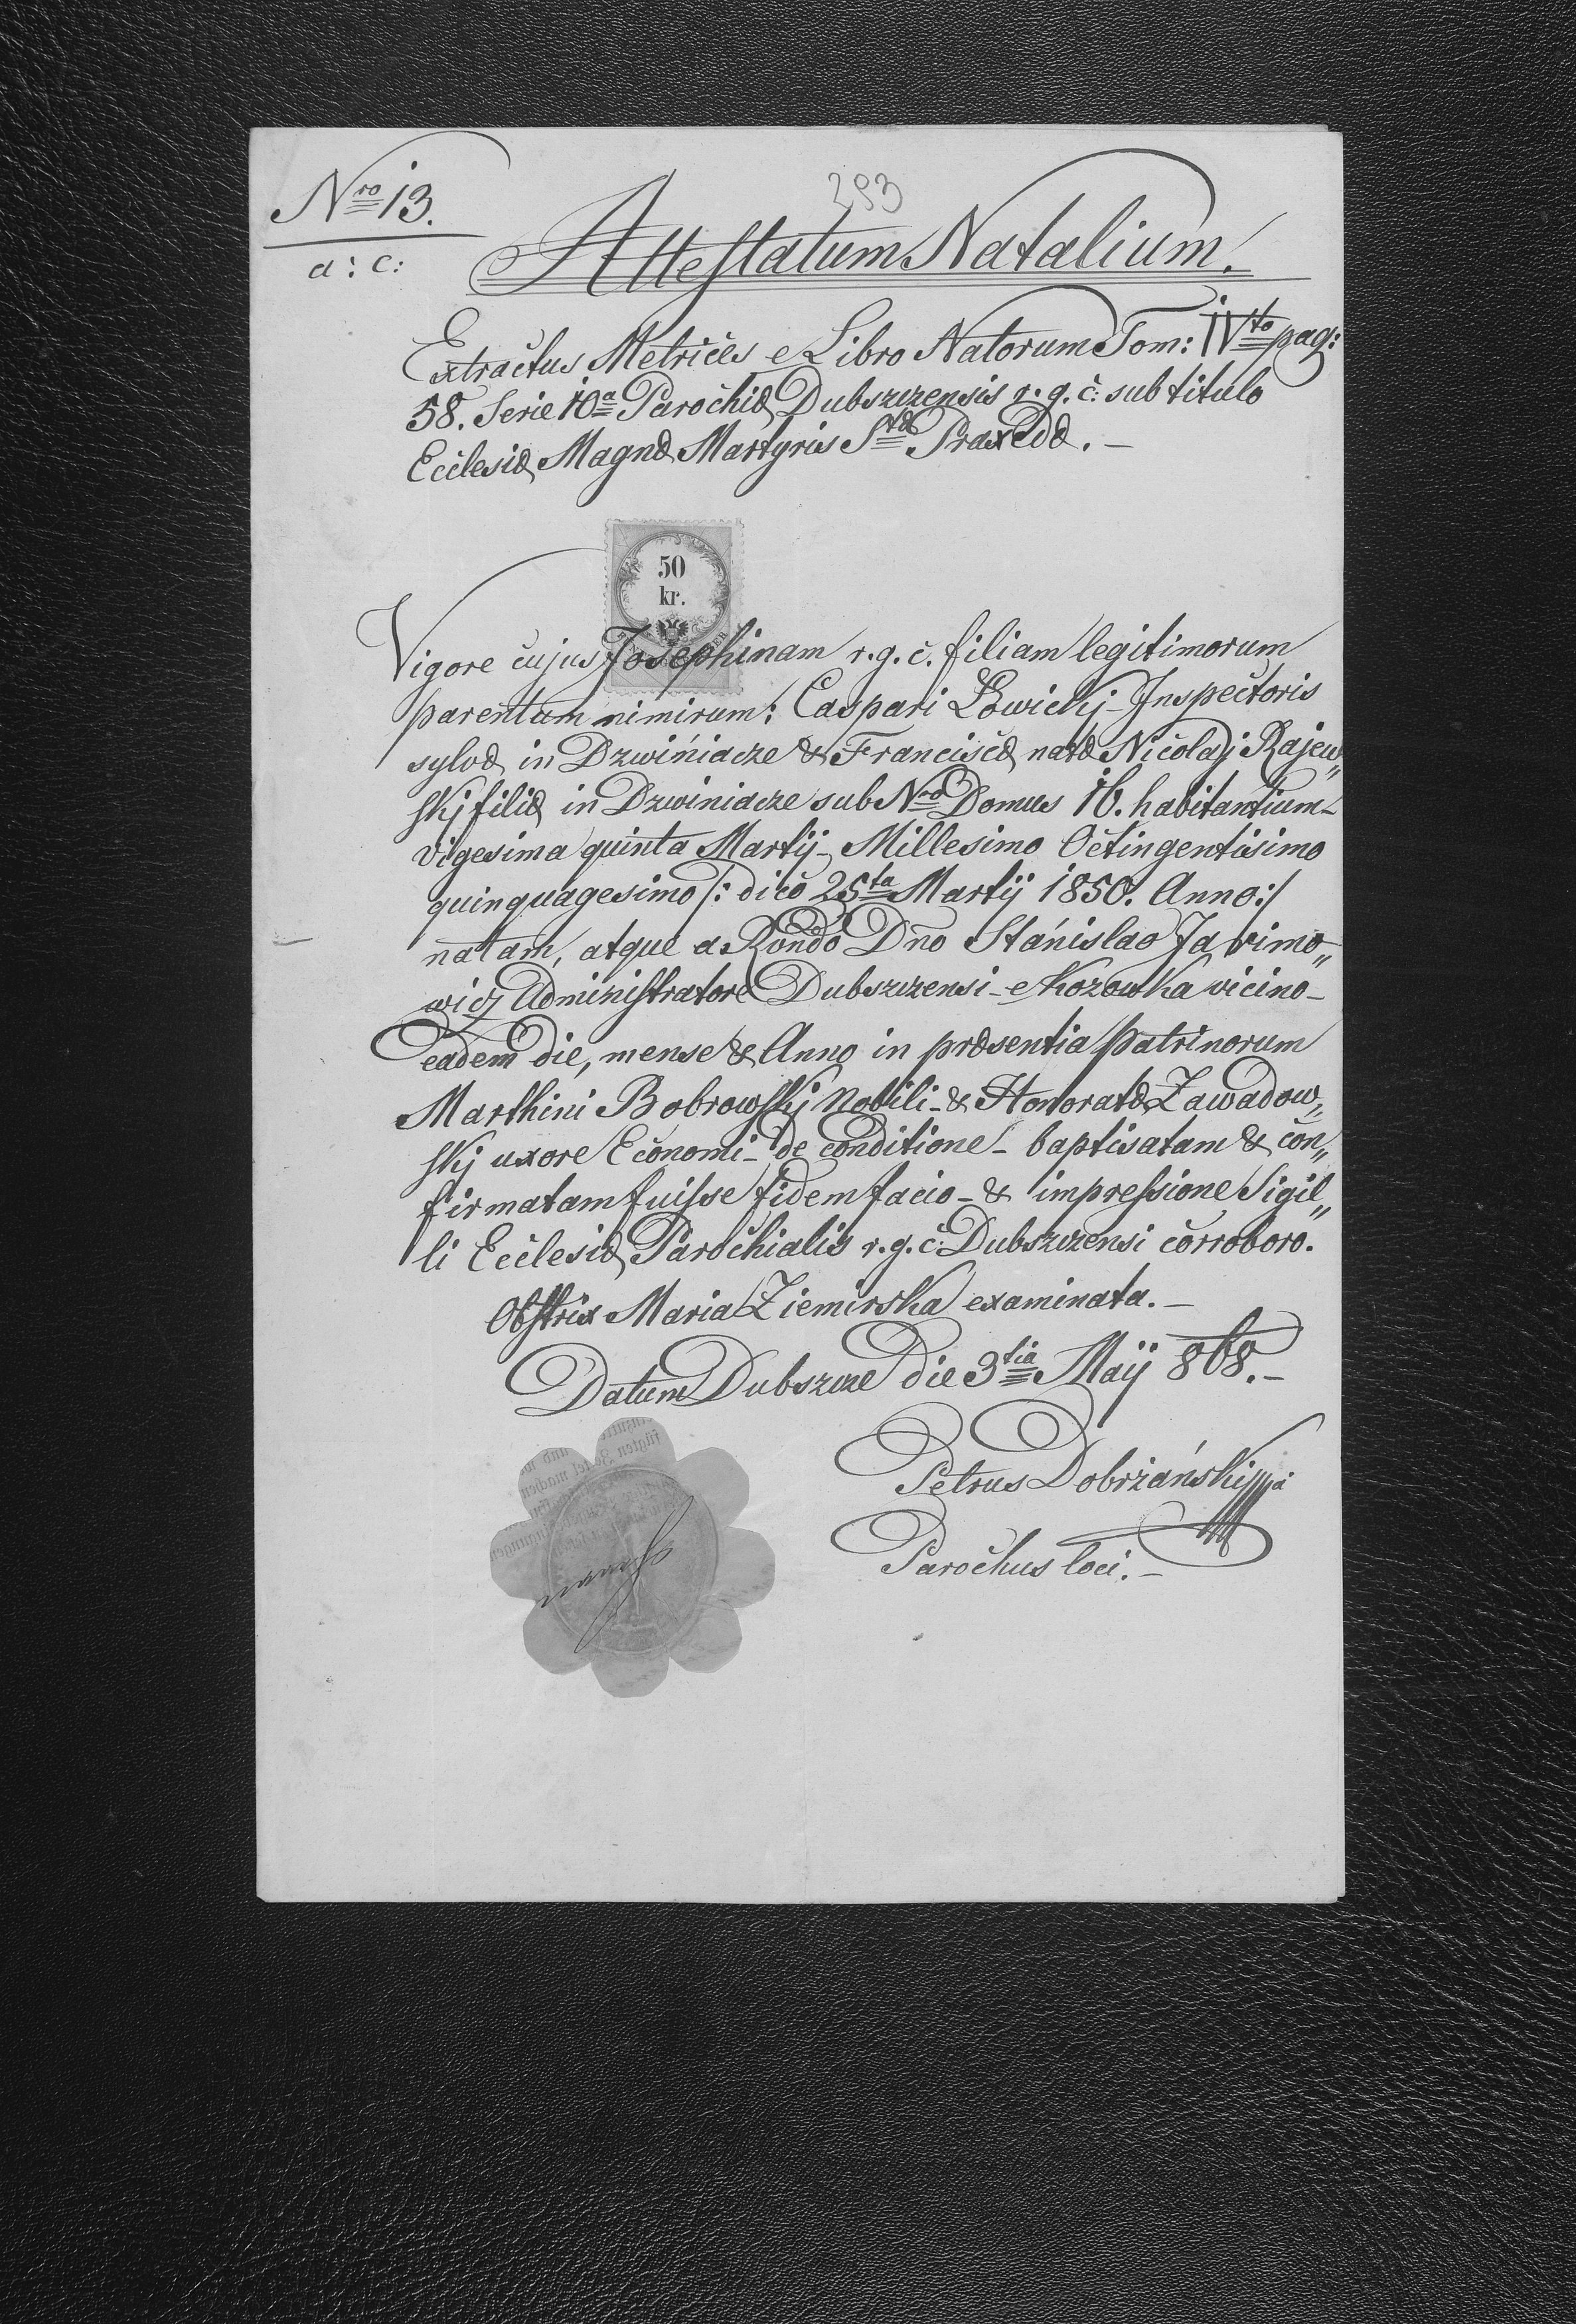 Nro 13.
a: c:
293
Attestatum Natalium.
Extractus Metrices e Libro Natorum Tom: IVto pag:
58. Serie 10a Parochiæ Dubszczensis r. g. c: sub titulo
Ecclesiæ Magnæ Martyris Stæ Praxedæ. –
50
kr.
Vigore cujus Josephinam r. g. c. filiam legitimorum
parentum nimirum: Caspari Łowickj – Inspectoris
sylvæ in Dzwiniacze & Franciscæ natæ Nicolaj Rajew„
skj filiæ in Dzwiniacze sub Nro Domus 16. habitantium –
vigesima quinta Martij – Millesimo Octingentisimo
quinquagesimo /: dico 25ta Martij 1850. Anno :/
natam, atque a Rondo Dno Stanislao Jarimo„
wicz Administratore Dubszczensi – e Kozowka vicino –
eadem die, mense & Anno in præsentia patrinorum
Marthini Bobrowskj Nobili – & Honoratæ Zawadow„
skj uxore Economi – de conditione – baptisatam & con„
firmatam fuisse fidem facio – & impressione Sigil„
li Ecclesiæ Parochialis r. g. c: Dubszczensi corroboro.
Obstrix Maria Ziemirska examinata. –
Datum Dubszcze Die 3tia Maij 868. –
Petrus Dobrzański mpa
Parochus loci. –